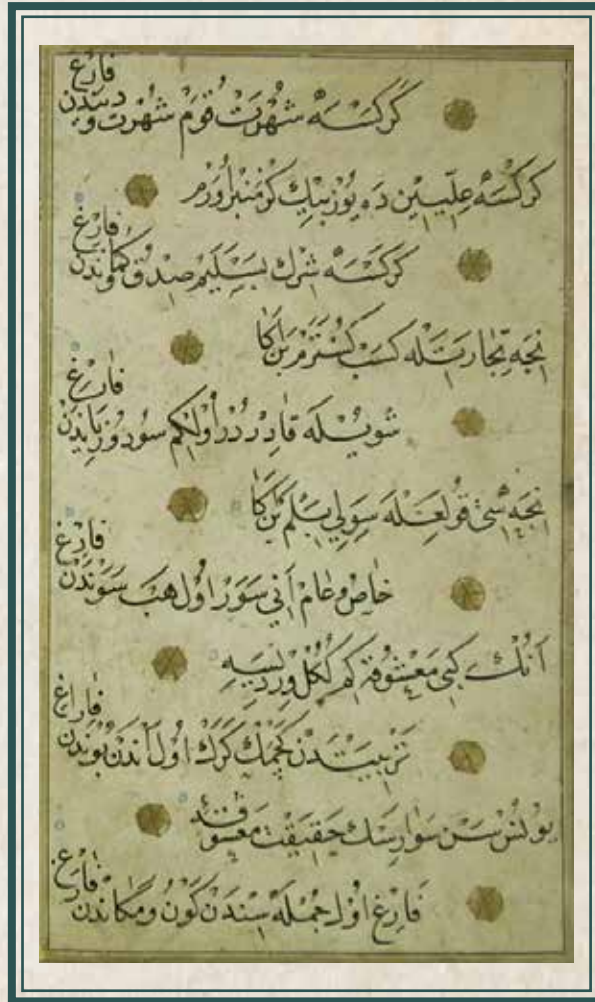 كركسه شهرت قوم شهرت و ديندن فارغ
كركسه علّيين ده يوزبيك كز منبر اورر
كركسه شرك بسليم صدق كماوندن فارغ
انجه تجارتله كسب كسترم بن اكا
شويله قادردر اولكم سود و زياندن فارغ
انجه سى قولغله سولى بيلم بن اكا
خاص و عام انى سور اول هب سوندن فارغ
انك كبى معشوقه كم كوكل ويرديسه
تربيتدن كچمك كرك اول اندن بوندن فارغ
يونس سن سوارسك حقيقت معشوقه
فارغ اول جمله سندن كون و مكاندن فارغ